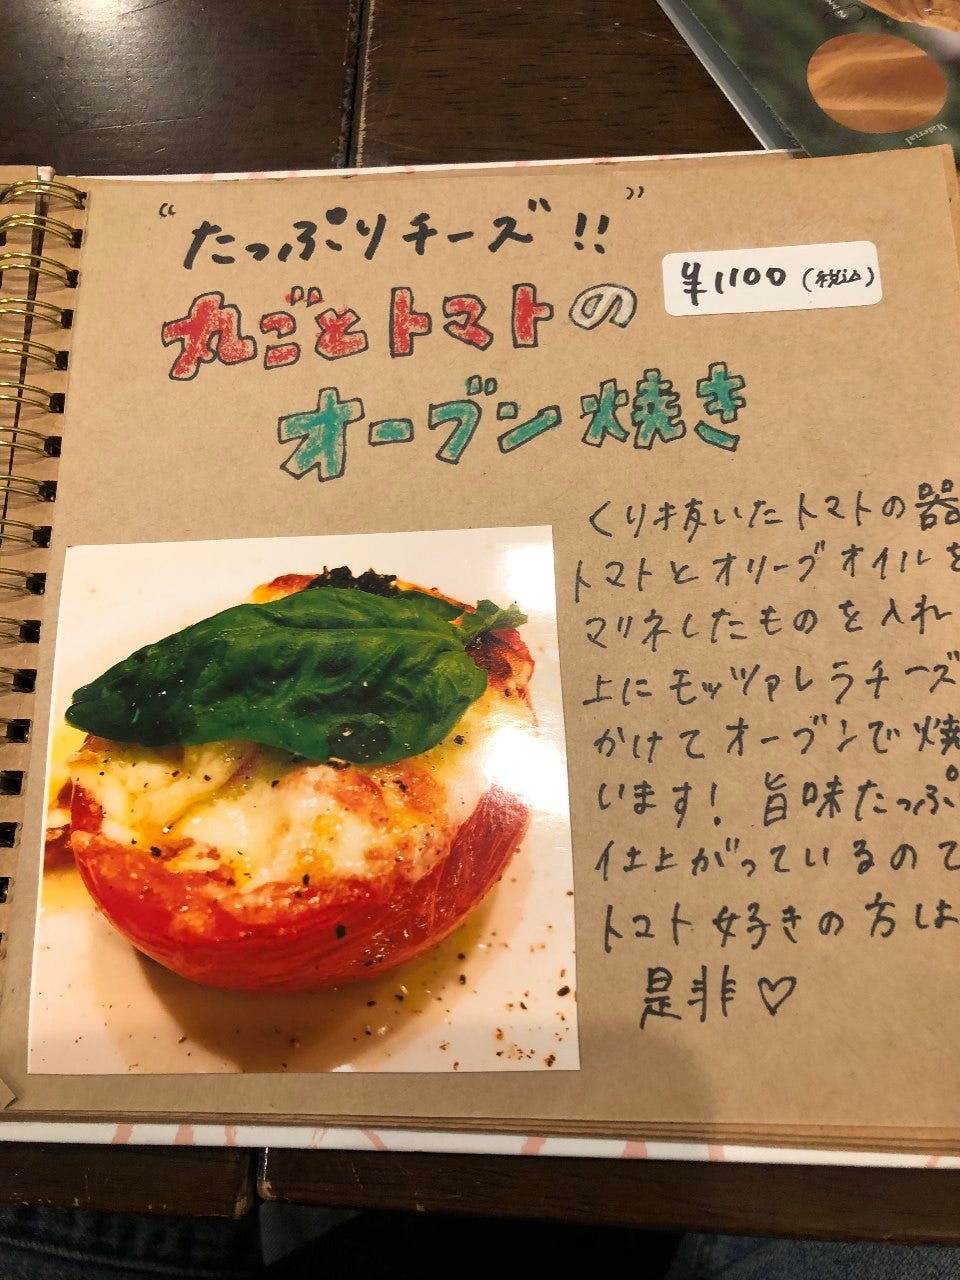 “たっぷりチーズ!!”
¥1100(税込)
丸ごとトマトの
オーブン焼き
くり抜いたトマトの器
トマトとオリーブオイルを
マリネしたものを入れ
上にモッツァレラチーズ
かけてオーブンで焼
います!旨味たっぷ
仕上がっているので
トマト好きの方は
是非♡
Material